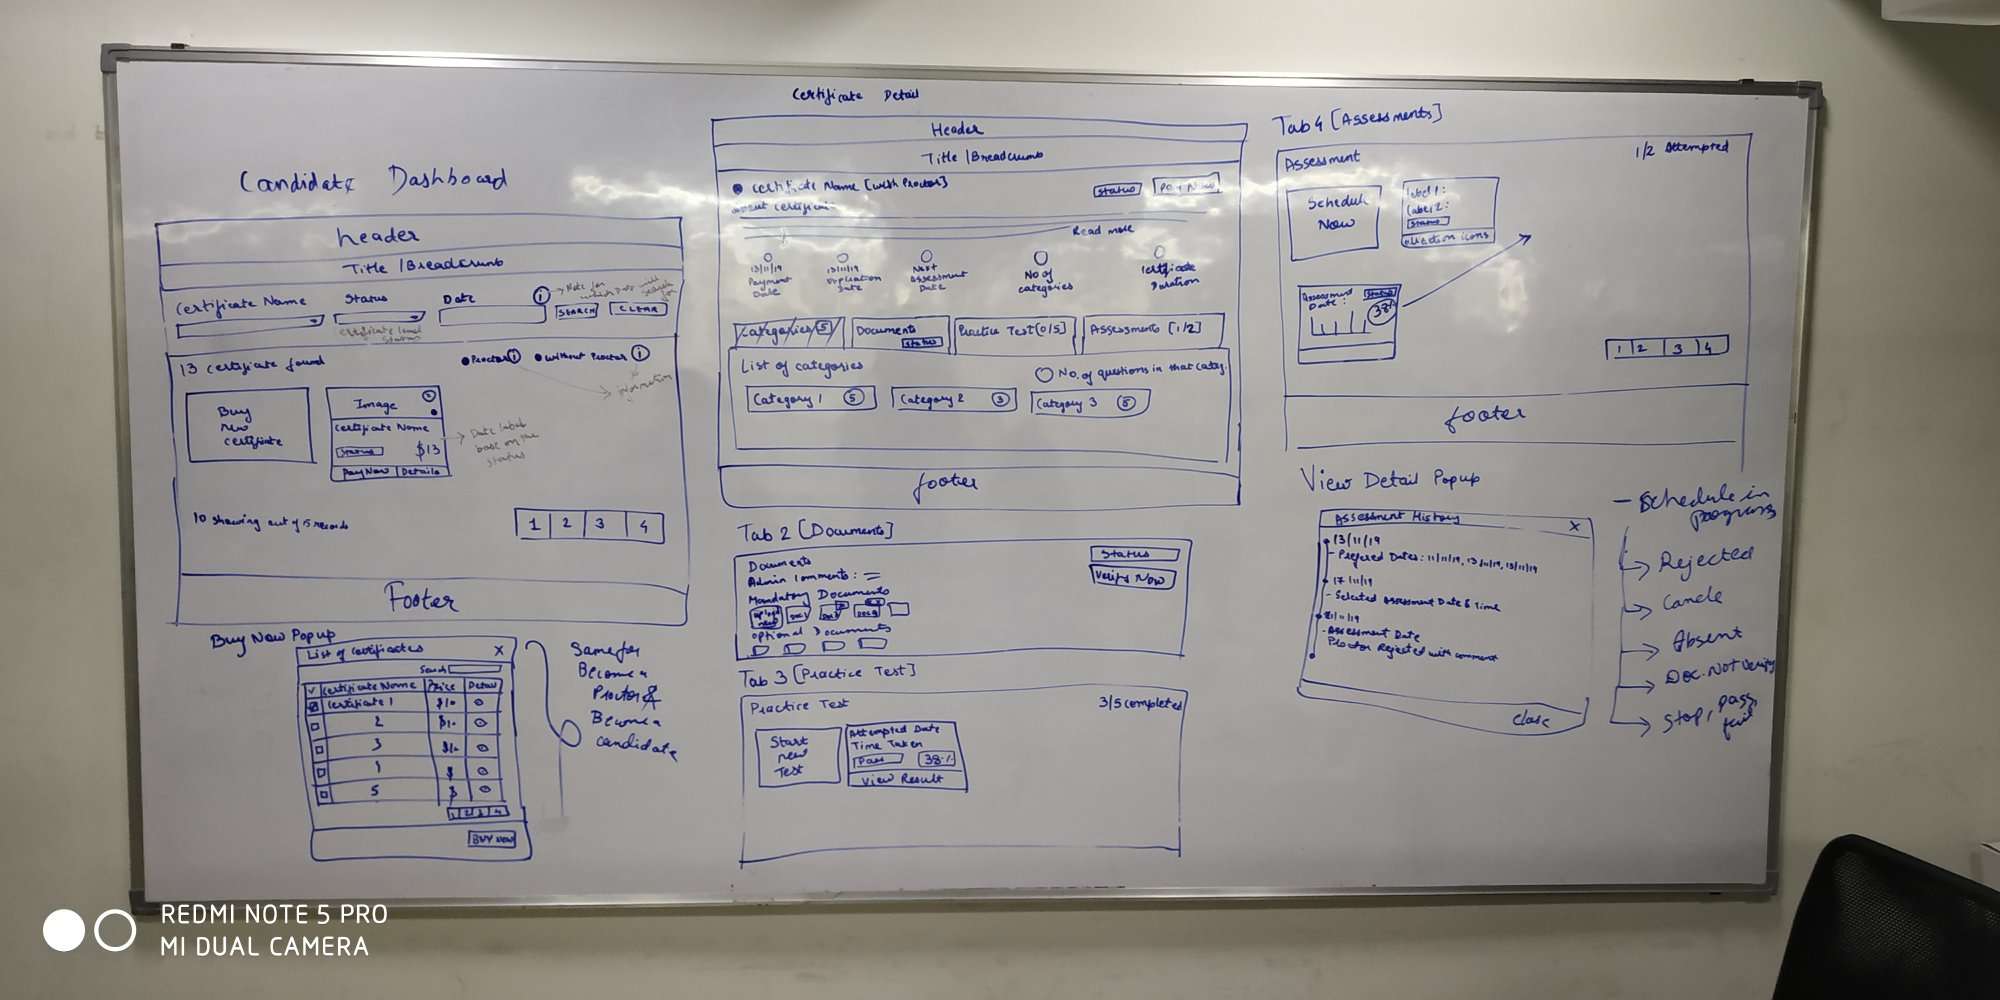 Candidate Dashboard
Header
Title / Breadcrumb
Certificate Name
Status
Date
i
Note for which Date will search for
SEARCH
CLEAR
Certificate level status
13 certificate found
Proctor i
without Proctor i
information
Buy new certificate
Image
Certificate Name
Status
$13
Pay Now
Details
Date label base on the status
10 showing out of 15 records
1 2 3 4
Footer
Buy Now Popup
List of certificates X
Search
Certificate Name Price Detail
Certificate 1 $10
2 $10
3 $10
$
5 $
1 2 3 4
BUY NOW
Same for
Become a
Proctor &
Become a
candidate
Certificate Detail
Header
Title / Breadcrumb
Certificate Name [with Proctor]
Status
Pay Now
Read more
13/11/19
Payment Date
13/11/19
Date
Next Assessment Date
No of categories
Certificate Duration
Categories 5
Documents
Status
Practice Test [0/5]
Assessments [1/2]
List of categories
No. of questions in that categ.
Category 1 5
Category 2 3
Category 3 5
footer
Tab 2 [Documents]
Documents
Status
Admin Comments :
Verify Now
Mandatory Documents
Upload new
Doc 1
Optional Documents
Tab 3 [Practice Test]
Practice Test
3/5 completed
Start new Test
Attempted Date
Time Taken
Pass
38%
View Result
Tab 4 [Assessments]
Assessment
1/2 Attempted
Schedule Now
Label 1:
Label 2:
Status
Action icons
Assessment Date :
Status
38%
1 2 3 4
footer
View Detail Popup
Assessment History X
13/11/19
- Prefered Dates : 11/11/19, 13/11/19, 15/11/19
17/11/19
- Selected Assessment Date & Time
- Assessment Date
Proctor Rejected with comment
Close
- Schedule in progress
Rejected
Cancle
Absent
Doc. Not Verify
Stop, pass, fail
REDMI NOTE 5 PRO
MI DUAL CAMERA